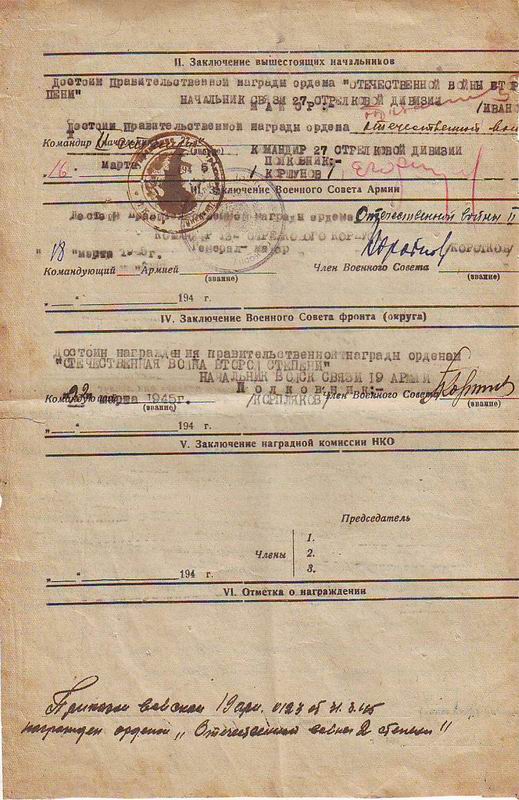 II. Заключение вышестоящих начальников
Достоин Правительственной награди ордема "ОТЕЧЕСТВЕННОЙ ВОЙНЫ ВТОР
ПЕНИ"
НАЧАЛЬНИК СВЯЗИ 27 СТРЕЛКОВОЙ ДИВИЗИИ
МАЙОР: /ИВАН
Достоин Правительственной награды ордена Отечественной вой
Командир
КОМАНДИР 27 СТРЕЛКОВОЙ ДИВИЗИИ
ПОЛКОВНИК:-
16 марта 194 5 / КОРШУНОВ /
III. Заключение Военного Совета Армии
Достоин награды ордена Отечественной войны II
СТРЕЛКОВОГО КОРПУ
Генерал майор
"18 "марта г. /КОРОТКОВ/
Командующий Армией Член Военного Совета
(звание) (звание)
194 г.
IV. Заключение Военного Совета фронта (округа)
Достоин награждения правительственной награды орденам
"ОТЕЧЕСТВЕННАЯ ВОЙНА ВТОРОЙ СТЕПЕНИ"
НАЧАЛЬНИК ВОЙСК СВЯЗИ 19 АРМИИ
Полковник:-
Командующий 22 марта 1945г. /КОРПЛЯКОВ/ Член Военного Совета
(звание) (звание)
194 г.
V. Заключение наградной комиссии НКО
Председатель
1.
Члены 2.
3.
194 г.
VI. Отметка о награждении
Приказом войскам 19 арм. №123 от 31.3.45
награжден орденом „Отечественной войны 2 степени"